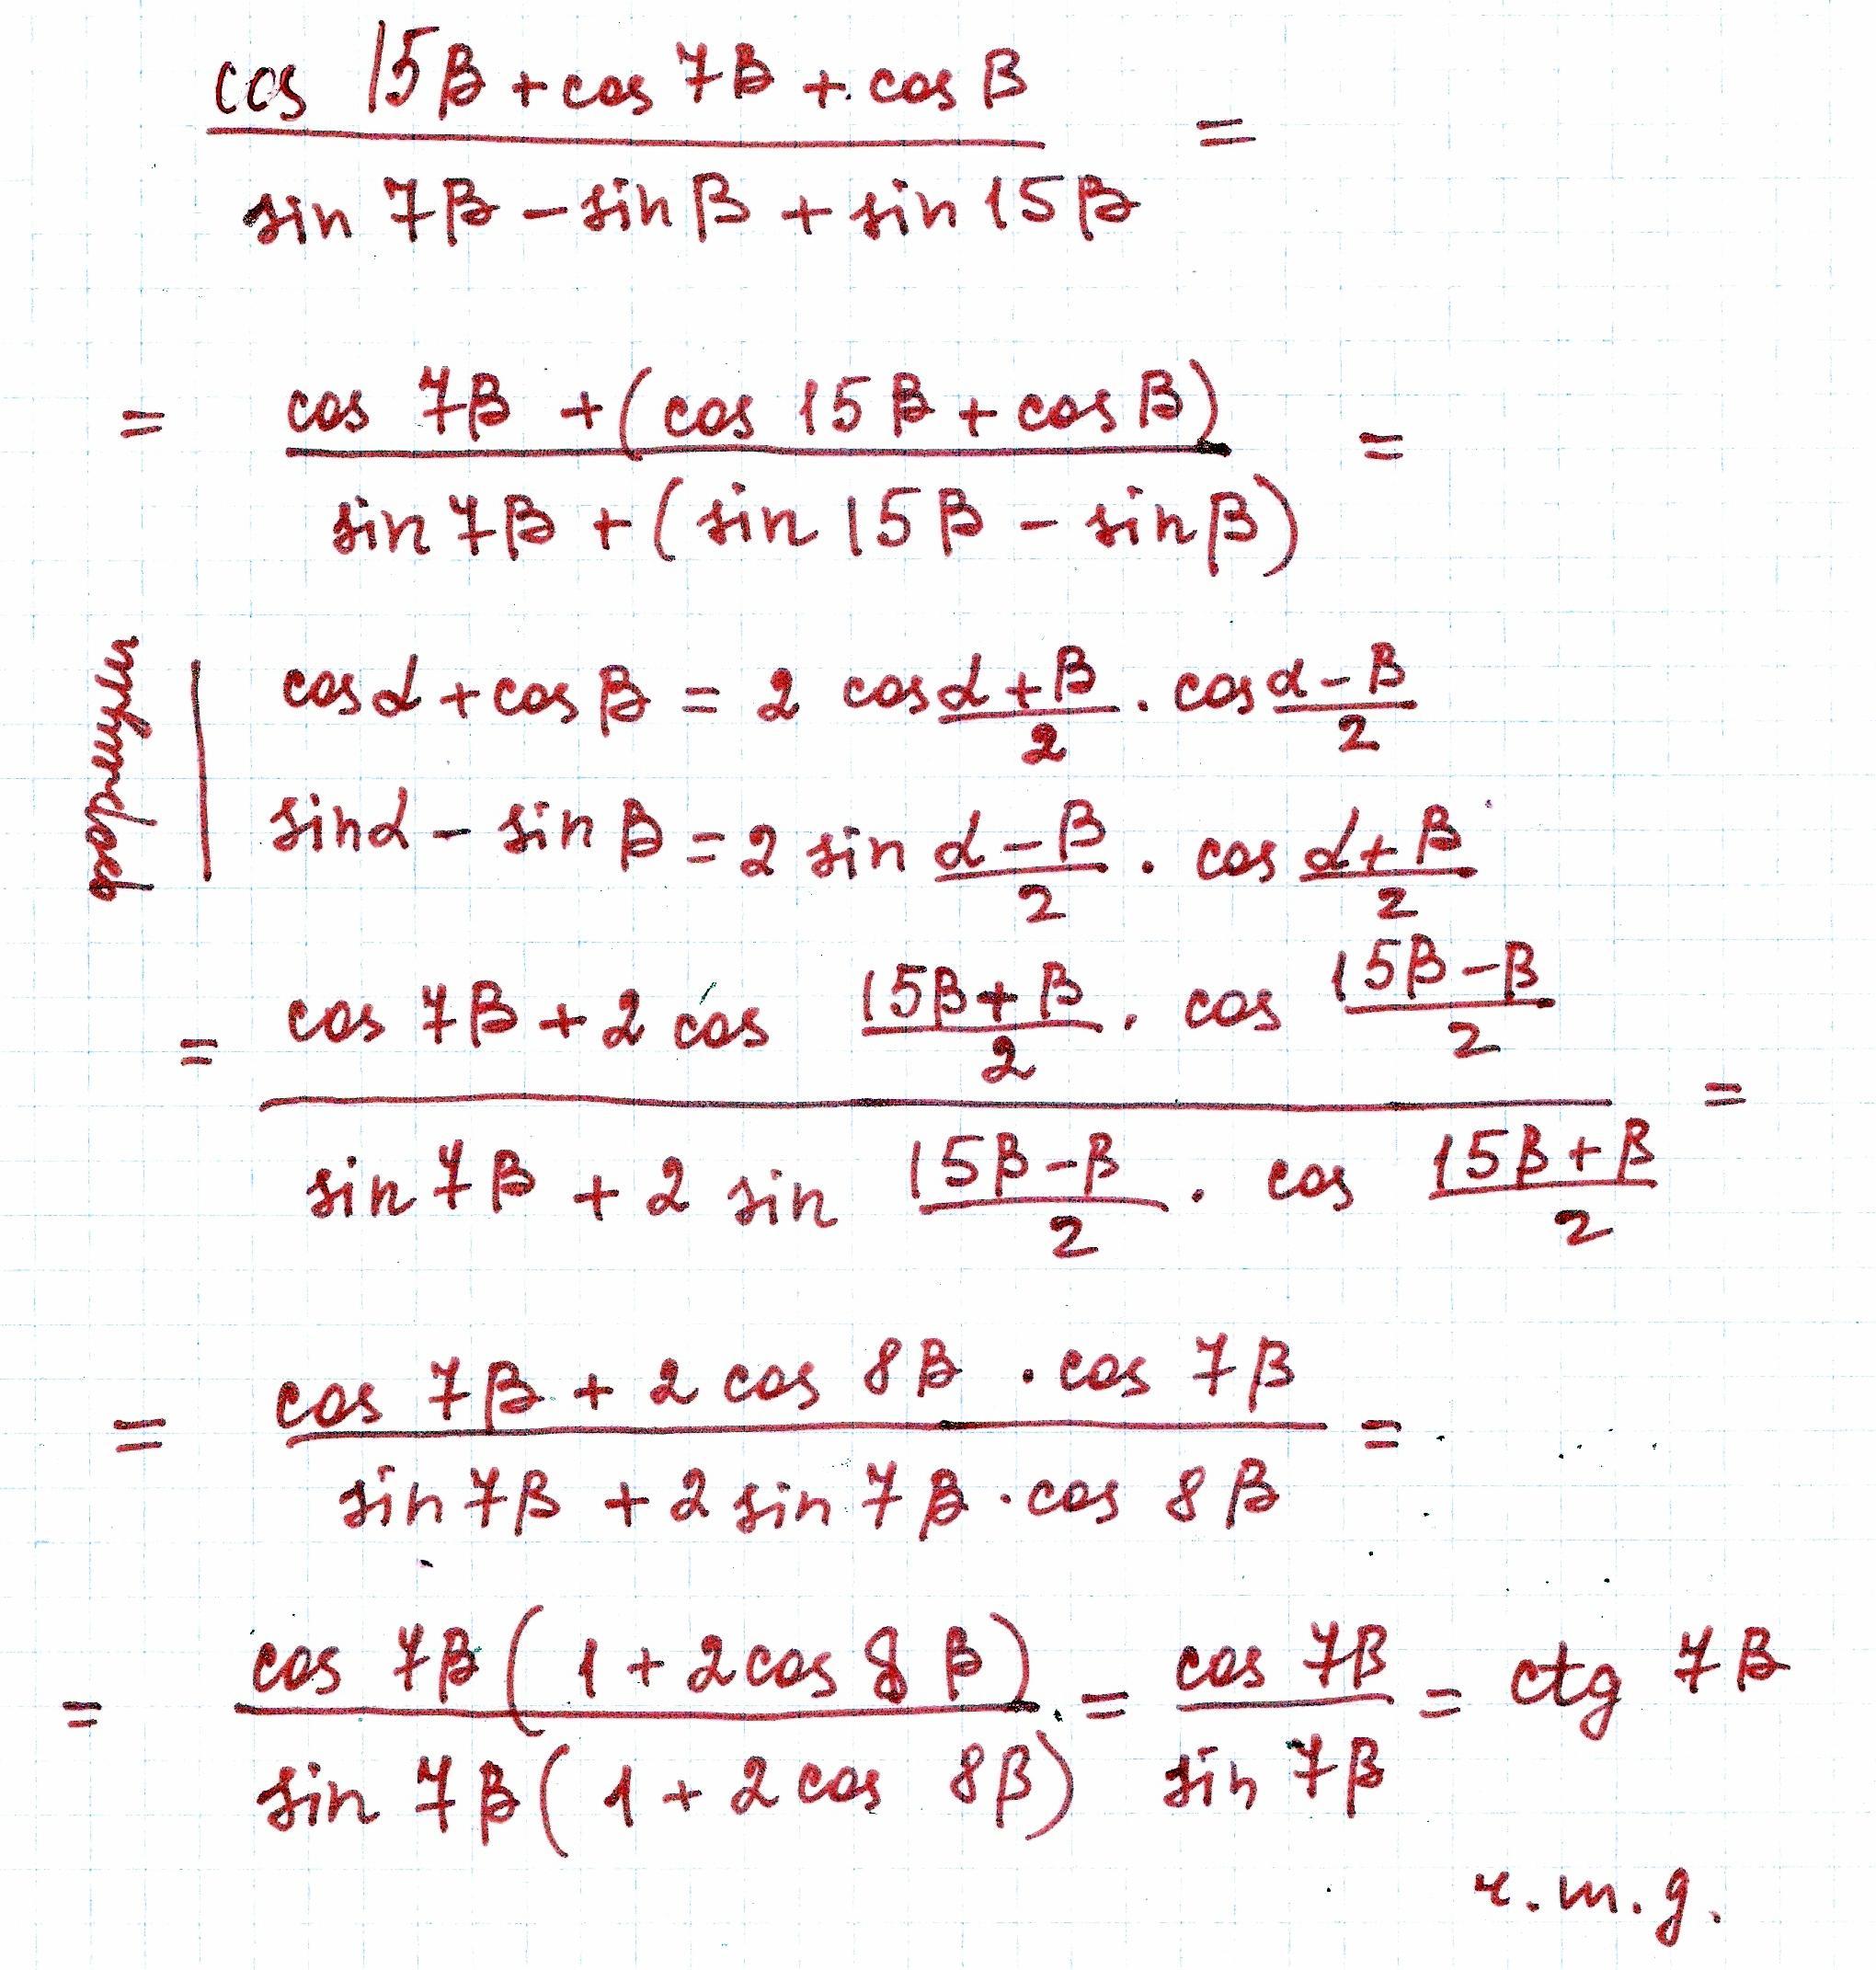 cos 15β + cos 7β + cos β
sin 7β − sin β + sin 15β =
= cos 7β + (cos 15β + cos β)
sin 7β + (sin 15β − sin β) =
формулы
cos α + cos β = 2 cos α + β / 2 · cos α − β / 2
sin α − sin β = 2 sin α − β / 2 · cos α + β / 2
= cos 7β + 2 cos 15β + β / 2 · cos 15β − β / 2
sin 7β + 2 sin 15β − β / 2 · cos 15β + β / 2 =
= cos 7β + 2 cos 8β · cos 7β
sin 7β + 2 sin 7β · cos 8β =
= cos 7β ( 1 + 2 cos 8 β) = cos 7β = ctg 7β
sin 7β ( 1 + 2 cos 8β) sin 7β
ч.т.д.